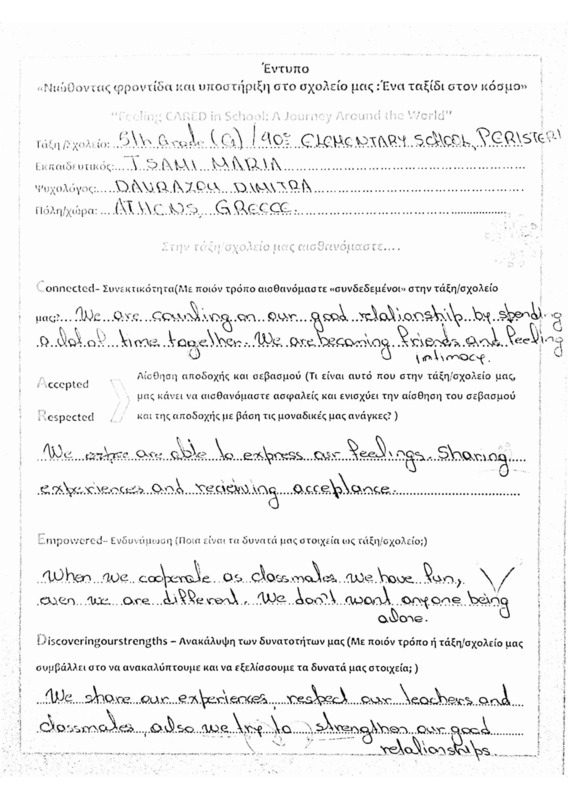 Έντυπο
«Νιώθοντας φροντίδα και υποστήριξη στο σχολείο μας :Ένα ταξίδι στον κόσμο»
"Feeling CARED in School: A Journey Around the World"
Τάξη/Σχολείο: 5th Grade (G) / 90º ELEMENTARY SCHOOL, PERISTERI
Εκπαιδευτικός: TSAMI MARIA
Ψυχολόγος: DIMITRA
Πόλη/χώρα: ATHENS, GREECE.
Στην τάξη/σχολείο μας αισθανόμαστε....
Connected– Συνεκτικότητα(Με ποιόν τρόπο αισθανόμαστε «συνδεδεμένοι» στην τάξη/σχολείο
μας; We are counting on our good relationship by spending
a lot of time together. We are becoming friends and feeling
intimacy.
Accepted
Respected
Αίσθηση αποδοχής και σεβασμού (Τι είναι αυτό που στην τάξη/σχολείο μας,
μας κάνει να αισθανόμαστε ασφαλείς και ενισχύει την αίσθηση του σεβασμού
και της αποδοχής με βάση τις μοναδικές μας ανάγκες? )
We are able to express our feelings. Sharing
experiences and reciciving acceptance.
Empowered– Ενδυνάμωση (Ποια είναι τα δυνατά μας στοιχεία ως τάξη/σχολείο;)
When we cooperate as classmates we have fun,
even we are different. We don't want anyone being
alone.
Discoveringourstrengths – Ανακάλυψη των δυνατοτήτων μας (Με ποιόν τρόπο ή τάξη/σχολείο μας
συμβάλλει στο να ανακαλύπτουμε και να εξελίσσουμε τα δυνατά μας στοιχεία; )
We share our experiences, respect our teachers and
classmates, also we try to strengthen our good
relationships.